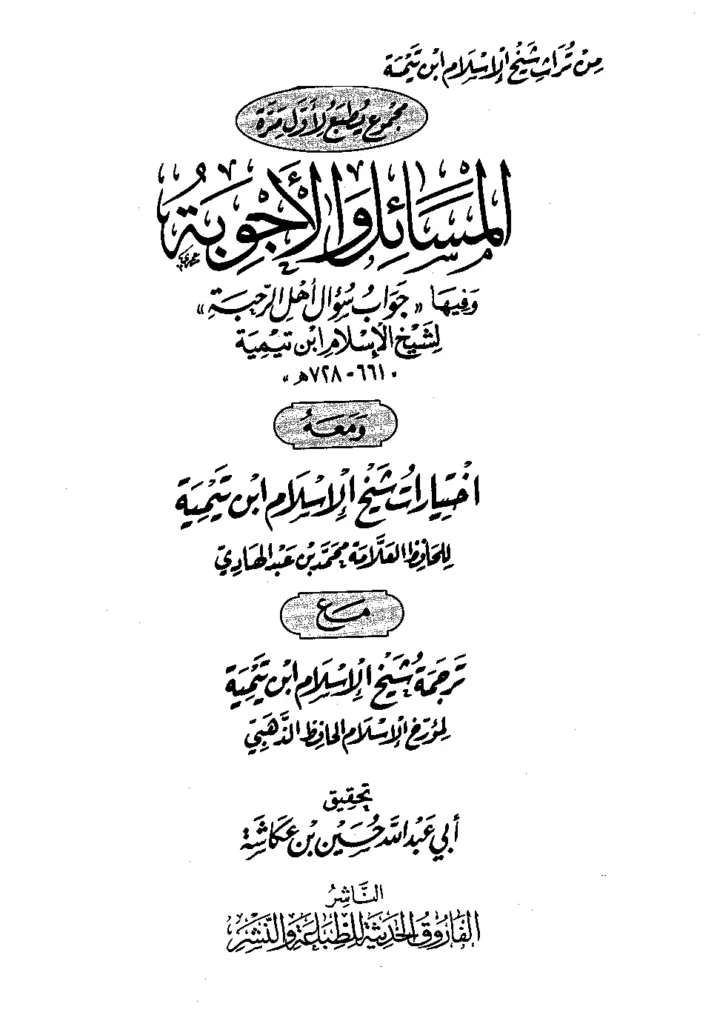 من تراث شيخ الإسلام ابن تيمية
مجموع يطبع لأول مرة
المسائل والأجوبة
وفيها «جواب سؤال أهل الرحبة»
لشيخ الإسلام ابن تيمية
«٦٦١-٧٢٨هـ»
ومعه
اختيارات شيخ الإسلام ابن تيمية
للحافظ العلامة محمد بن عبد الهادي
مع
ترجمة شيخ الإسلام ابن تيمية
لمؤرخ الإسلام الحافظ الذهبي
تحقيق
أبي عبد الله حسين بن عكاشة
الناشر
الفاروق الحديثة للطباعة والنشر